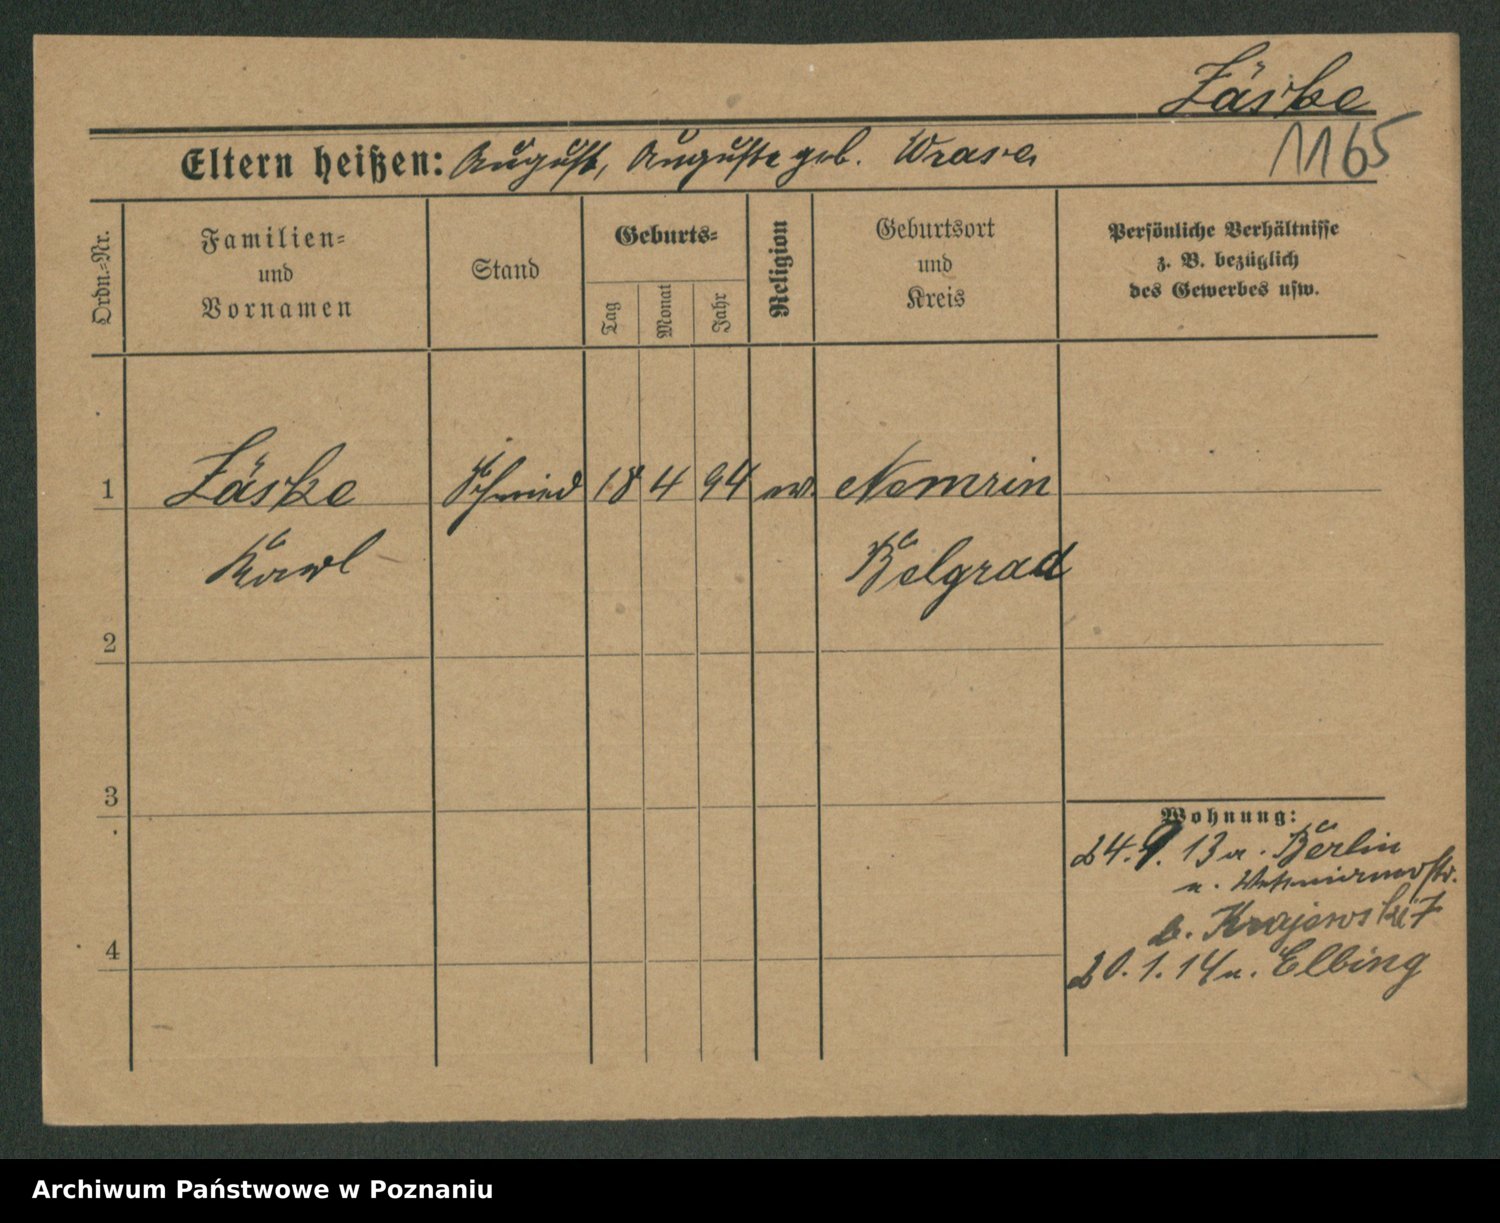 Zäske
1165
Eltern heißen: August, Auguste geb. Wrase
Ordn.-Nr.
Familien-
und
Vornamen
Stand
Geburts-
Tag
Monat
Jahr
Religion
Geburtsort
und
Kreis
Persönliche Verhältnisse
z. B. bezüglich
des Gewerbes usw.
1
Zäske
Schmied
18
4
94
ev.
Nemrin
Karl
Belgrad
2
3
4
Wohnung:
24. 9. 13 a. Berlin
b. Krajewski
20. 1. 14 n. Elbing
Archiwum Państwowe w Poznaniu